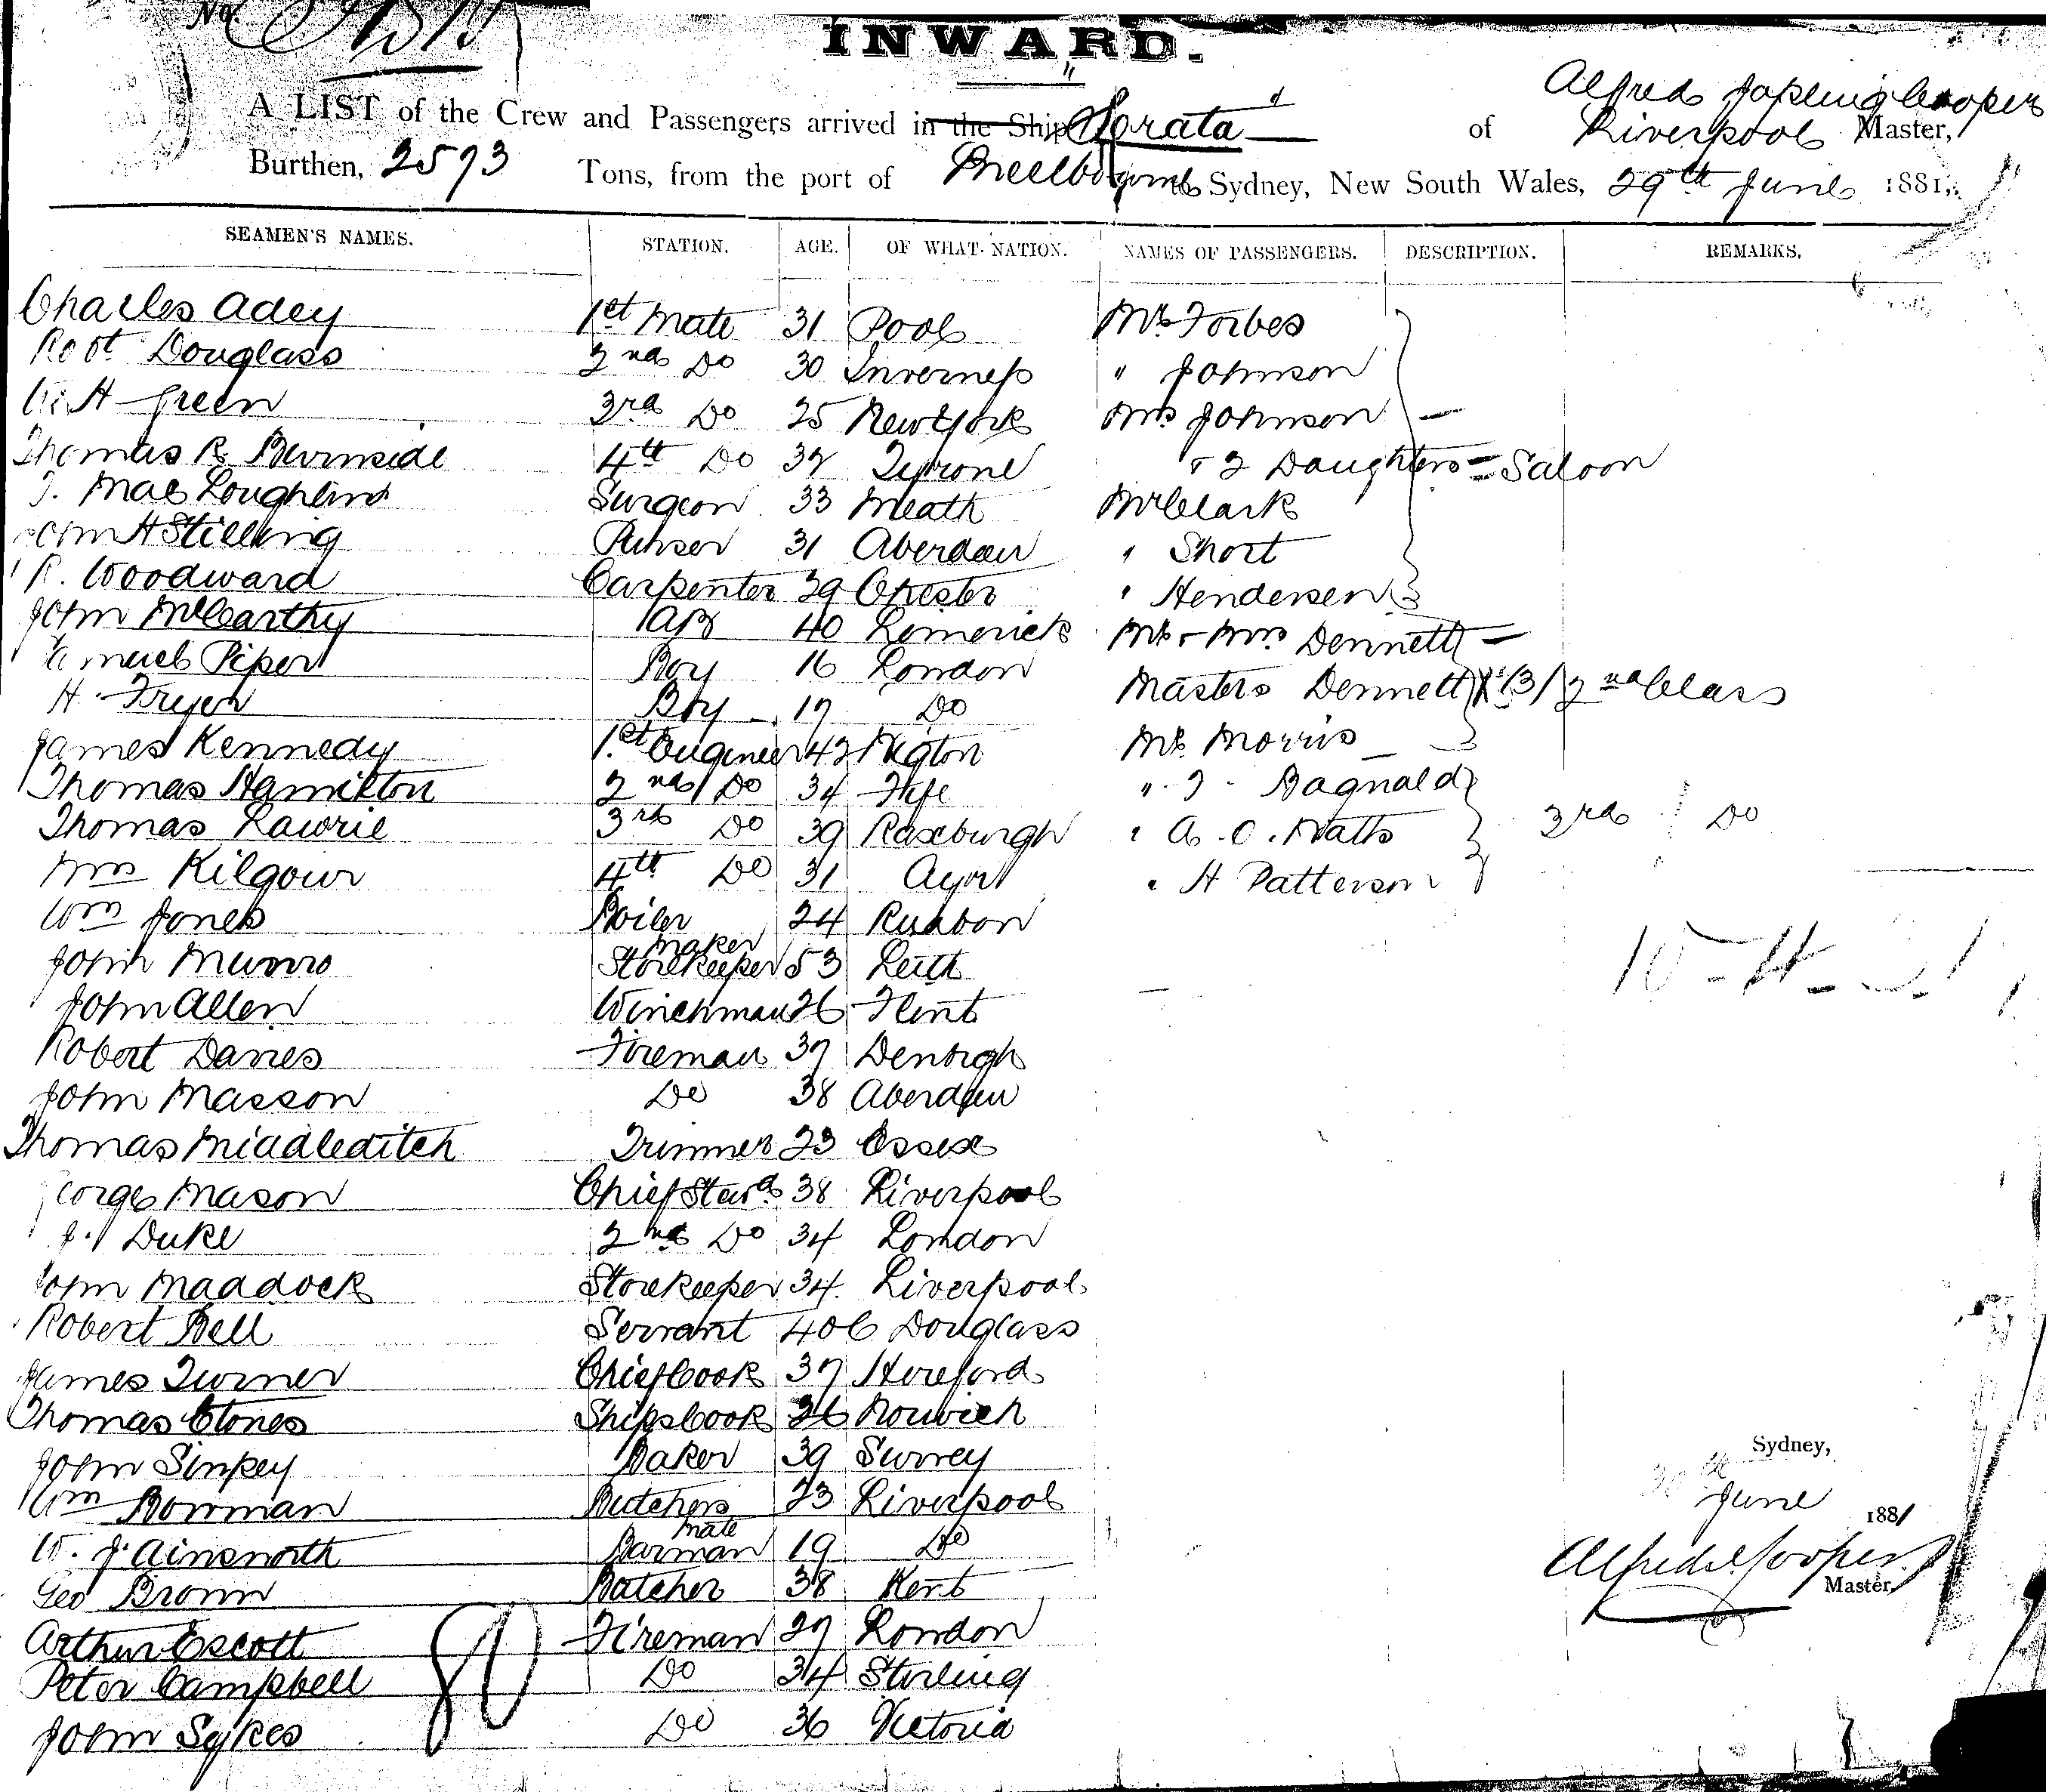 No
INWARD.
A LIST of the Crew and Passengers arrived in the Ship "Sorata" of Liverpool Alfred Jopling Cooper Master,
Burthen, 2573 Tons, from the port of Melbourne to Sydney, New South Wales, 29th June 1881,
SEAMEN'S NAMES. STATION. AGE. OF WHAT NATION. NAMES OF PASSENGERS. DESCRIPTION. REMARKS.
Charles Adey 1st Mate 31 Pool Mr Forbes
Robt Douglass 2nd Do 30 Inverness " Johnson
W. H Green 3rd Do 25 New York Mrs Johnson
Thomas R Burnside 4th Do 32 Tyrone & 2 Daughters Saloon
J. Mac Loughlin Surgeon 33 Meath Mr Clark
John H Stilling Purser 31 Aberdeen " Short
R. Woodward Carpenter 29 Chester " Hendersen
John McCarthy AB 40 Limerick Mr & Mrs Dennett
Samuel Piper Boy 16 London Masters Dennett 2nd Class
H. Fryer Boy 17 Do
James Kennedy 1st Engineer 42 Wigton Mr Morris
Thomas Hamilton 2nd Do 34 Fife " J. Bagnald
Thomas Lawrie 3rd Do 39 Roxburgh " A. O. Watts 3rd Do
Wm Kilgour 4th Do 31 Ayr " H Patterson
Wm Jones Boiler maker 24 Ruabon
John Munro Storekeeper 53 Leith
John Allen Winchman 26 Flint
Robert Davies Fireman 37 Denbigh
John Masson Do 38 Aberdeen
Thomas Middleditch Trimmer 23 Essex
George Mason Chief Stwd 38 Liverpool
J. Duke 2nd Do 34 London
John Maddock Storekeeper 34 Liverpool
Robert Bell Servant 40 Douglass
James Turner Chief Cook 37 Hereford
Thomas Clones Ships Cook 26 Norwich
John Sinkey Baker 39 Surrey
Wm Bowman Butchers Mate 23 Liverpool
W. J. Ainsworth Barman 19 Do
Geo Brown Butcher 38 Kent
Arthur Escott Fireman 27 London
Peter Campbell Do 34 Stirling
John Sykes Do 36 Victoria
80
Sydney,
30th June 1881
Alfred J Cooper
Master,